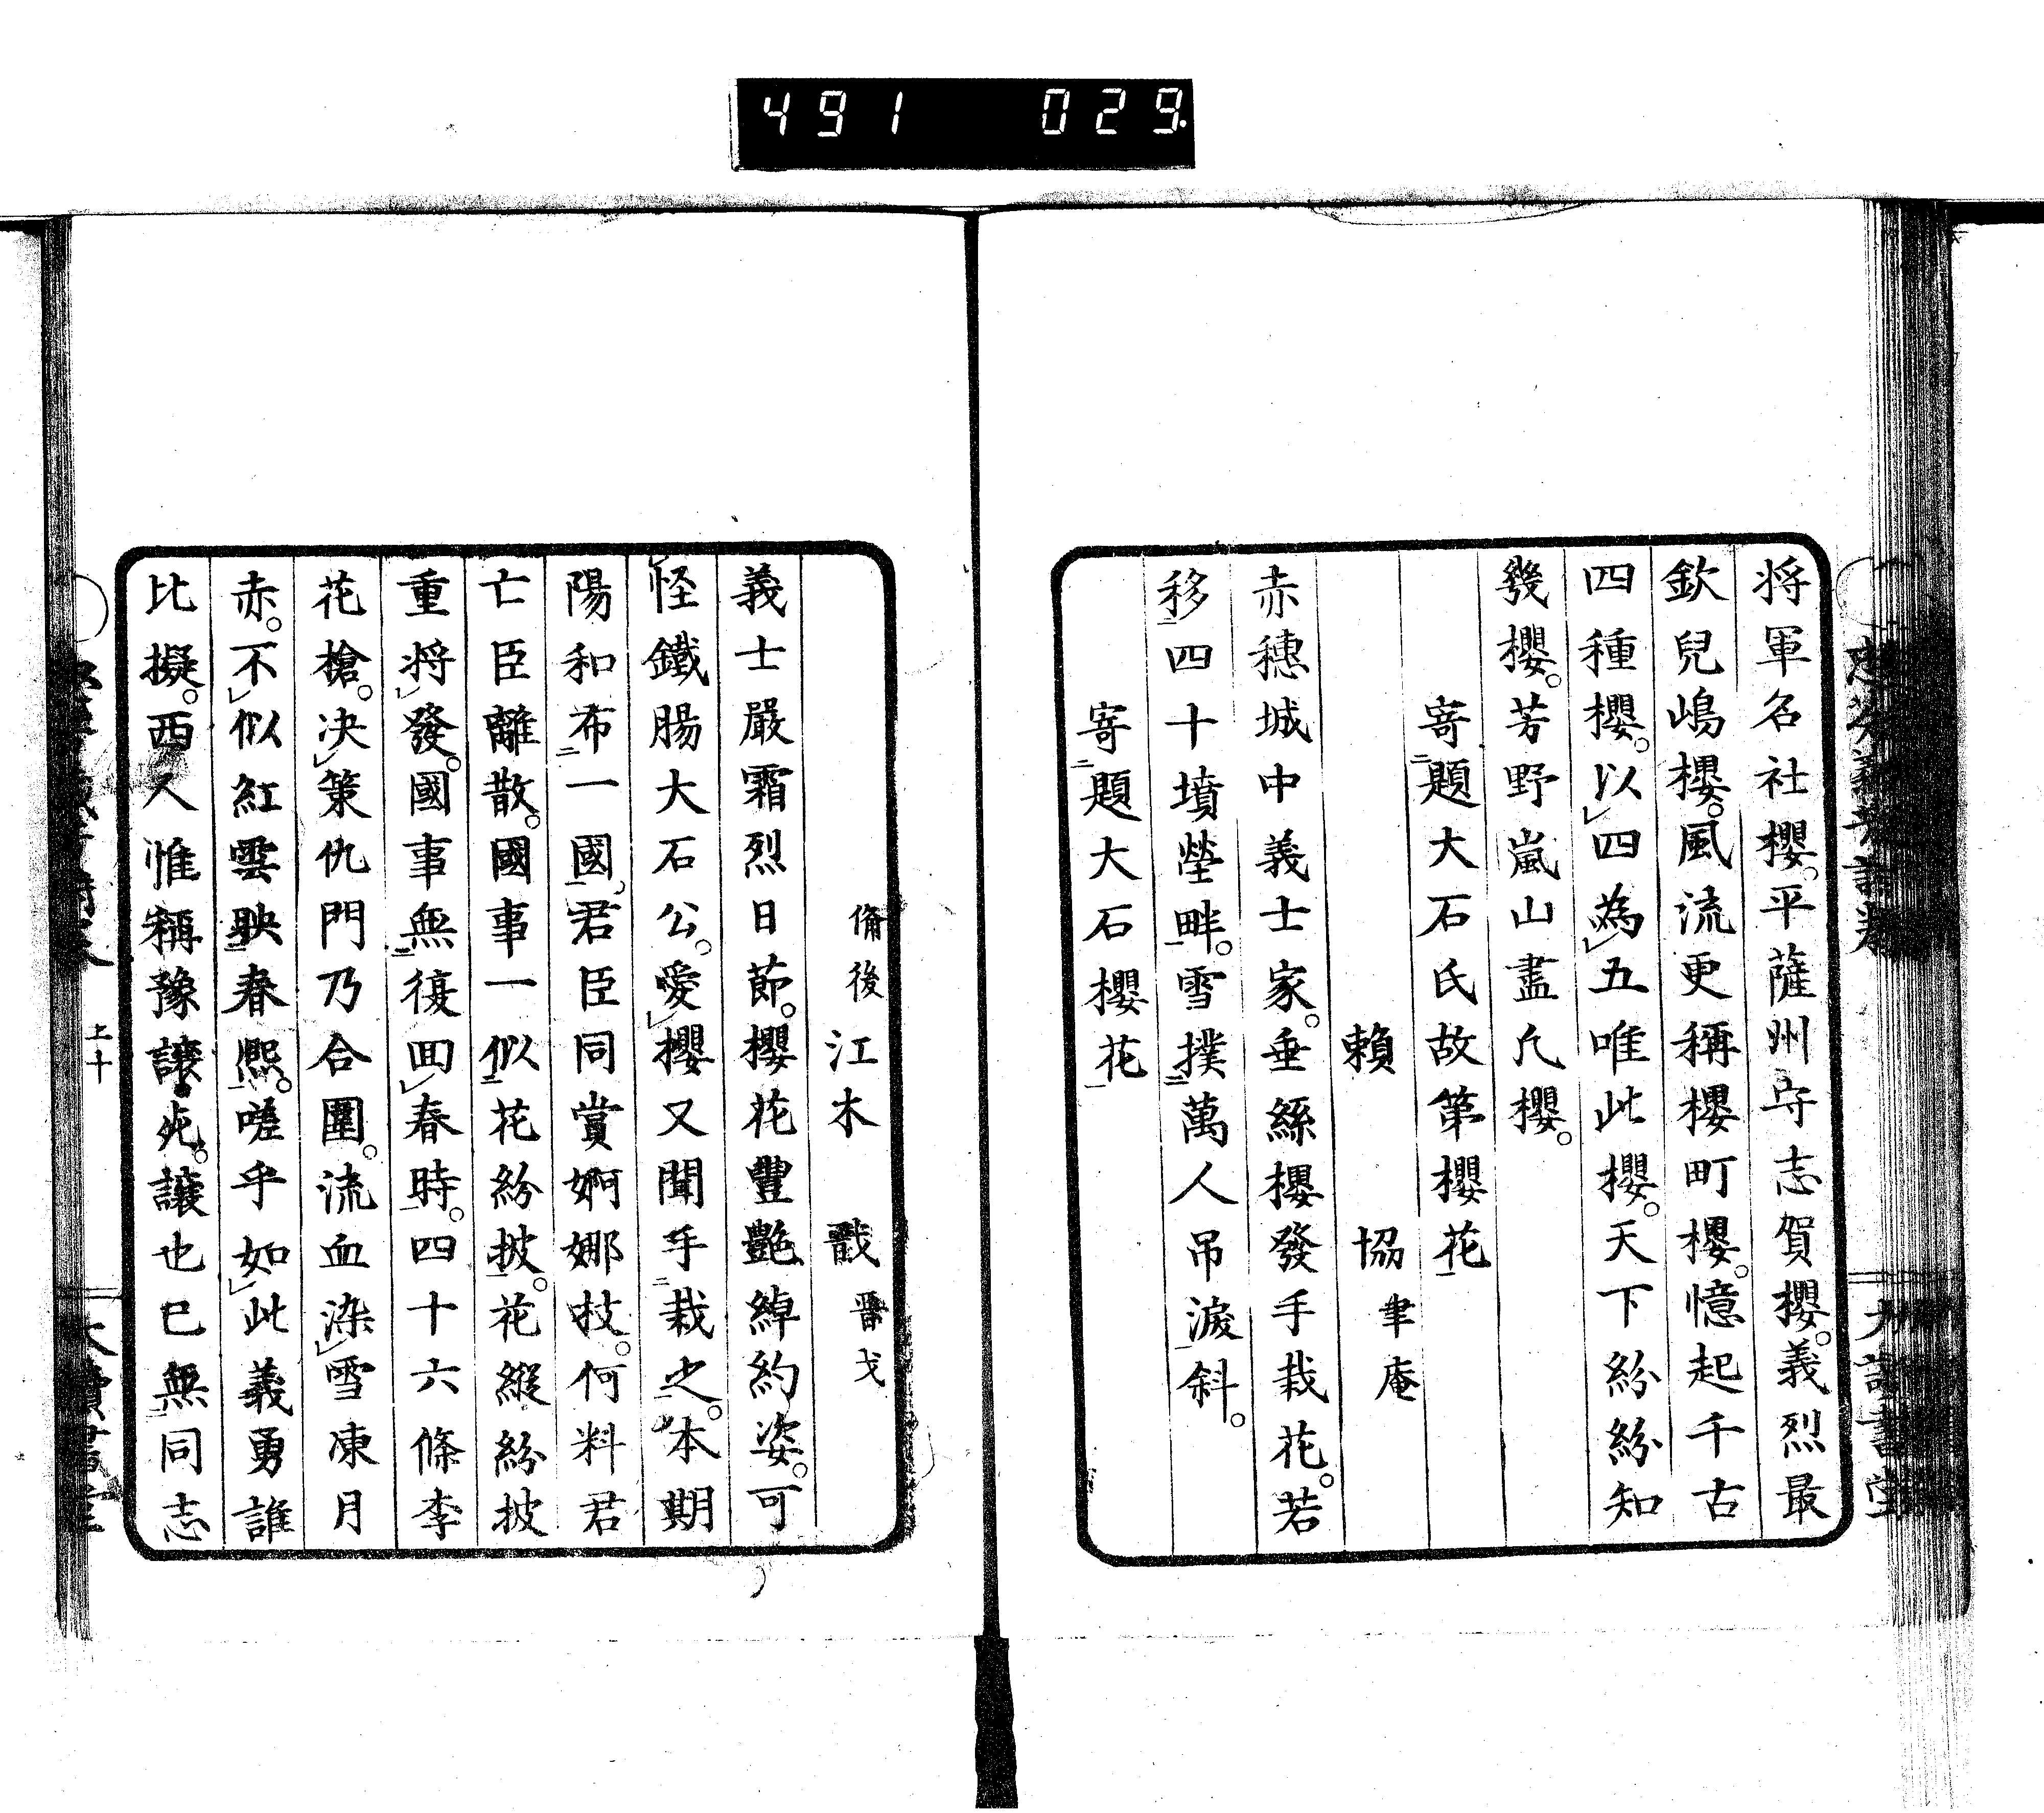 491 029.
将軍名社櫻。平薩州守志賀櫻。義烈最
欽兒嶋櫻。風流更稱櫻町櫻。憶起千古
四種櫻。以レ四為レ五唯此櫻。天下紛紛知
幾櫻。芳野嵐山盡凡櫻。
寄二題大石氏故第櫻花一
賴 協 聿庵
赤穗城中義士家。垂絲櫻發手栽花。若
移二四十墳塋畔一。雪撲二萬人吊淚一斜。
寄二題大石櫻花一
備後 江木 戩 晉戈
義士嚴霜烈日節。櫻花豐艷綽約姿。可
怪鐵腸大石公。愛レ櫻又聞手二栽之一。本期
陽和布二一國一。君臣同賞婀娜枝。何料君
亡臣離散。國事一似二花紛披一。花縱紛披
重將レ發。國事無二復回レ春時一。四十六條李
花槍。决レ策仇門乃合圍。流血染レ雪凍月
赤。不レ似紅雲映二春熙一。嗟乎如レ此義勇誰
比擬。西人惟稱豫讓死。讓也已無二同志
上十